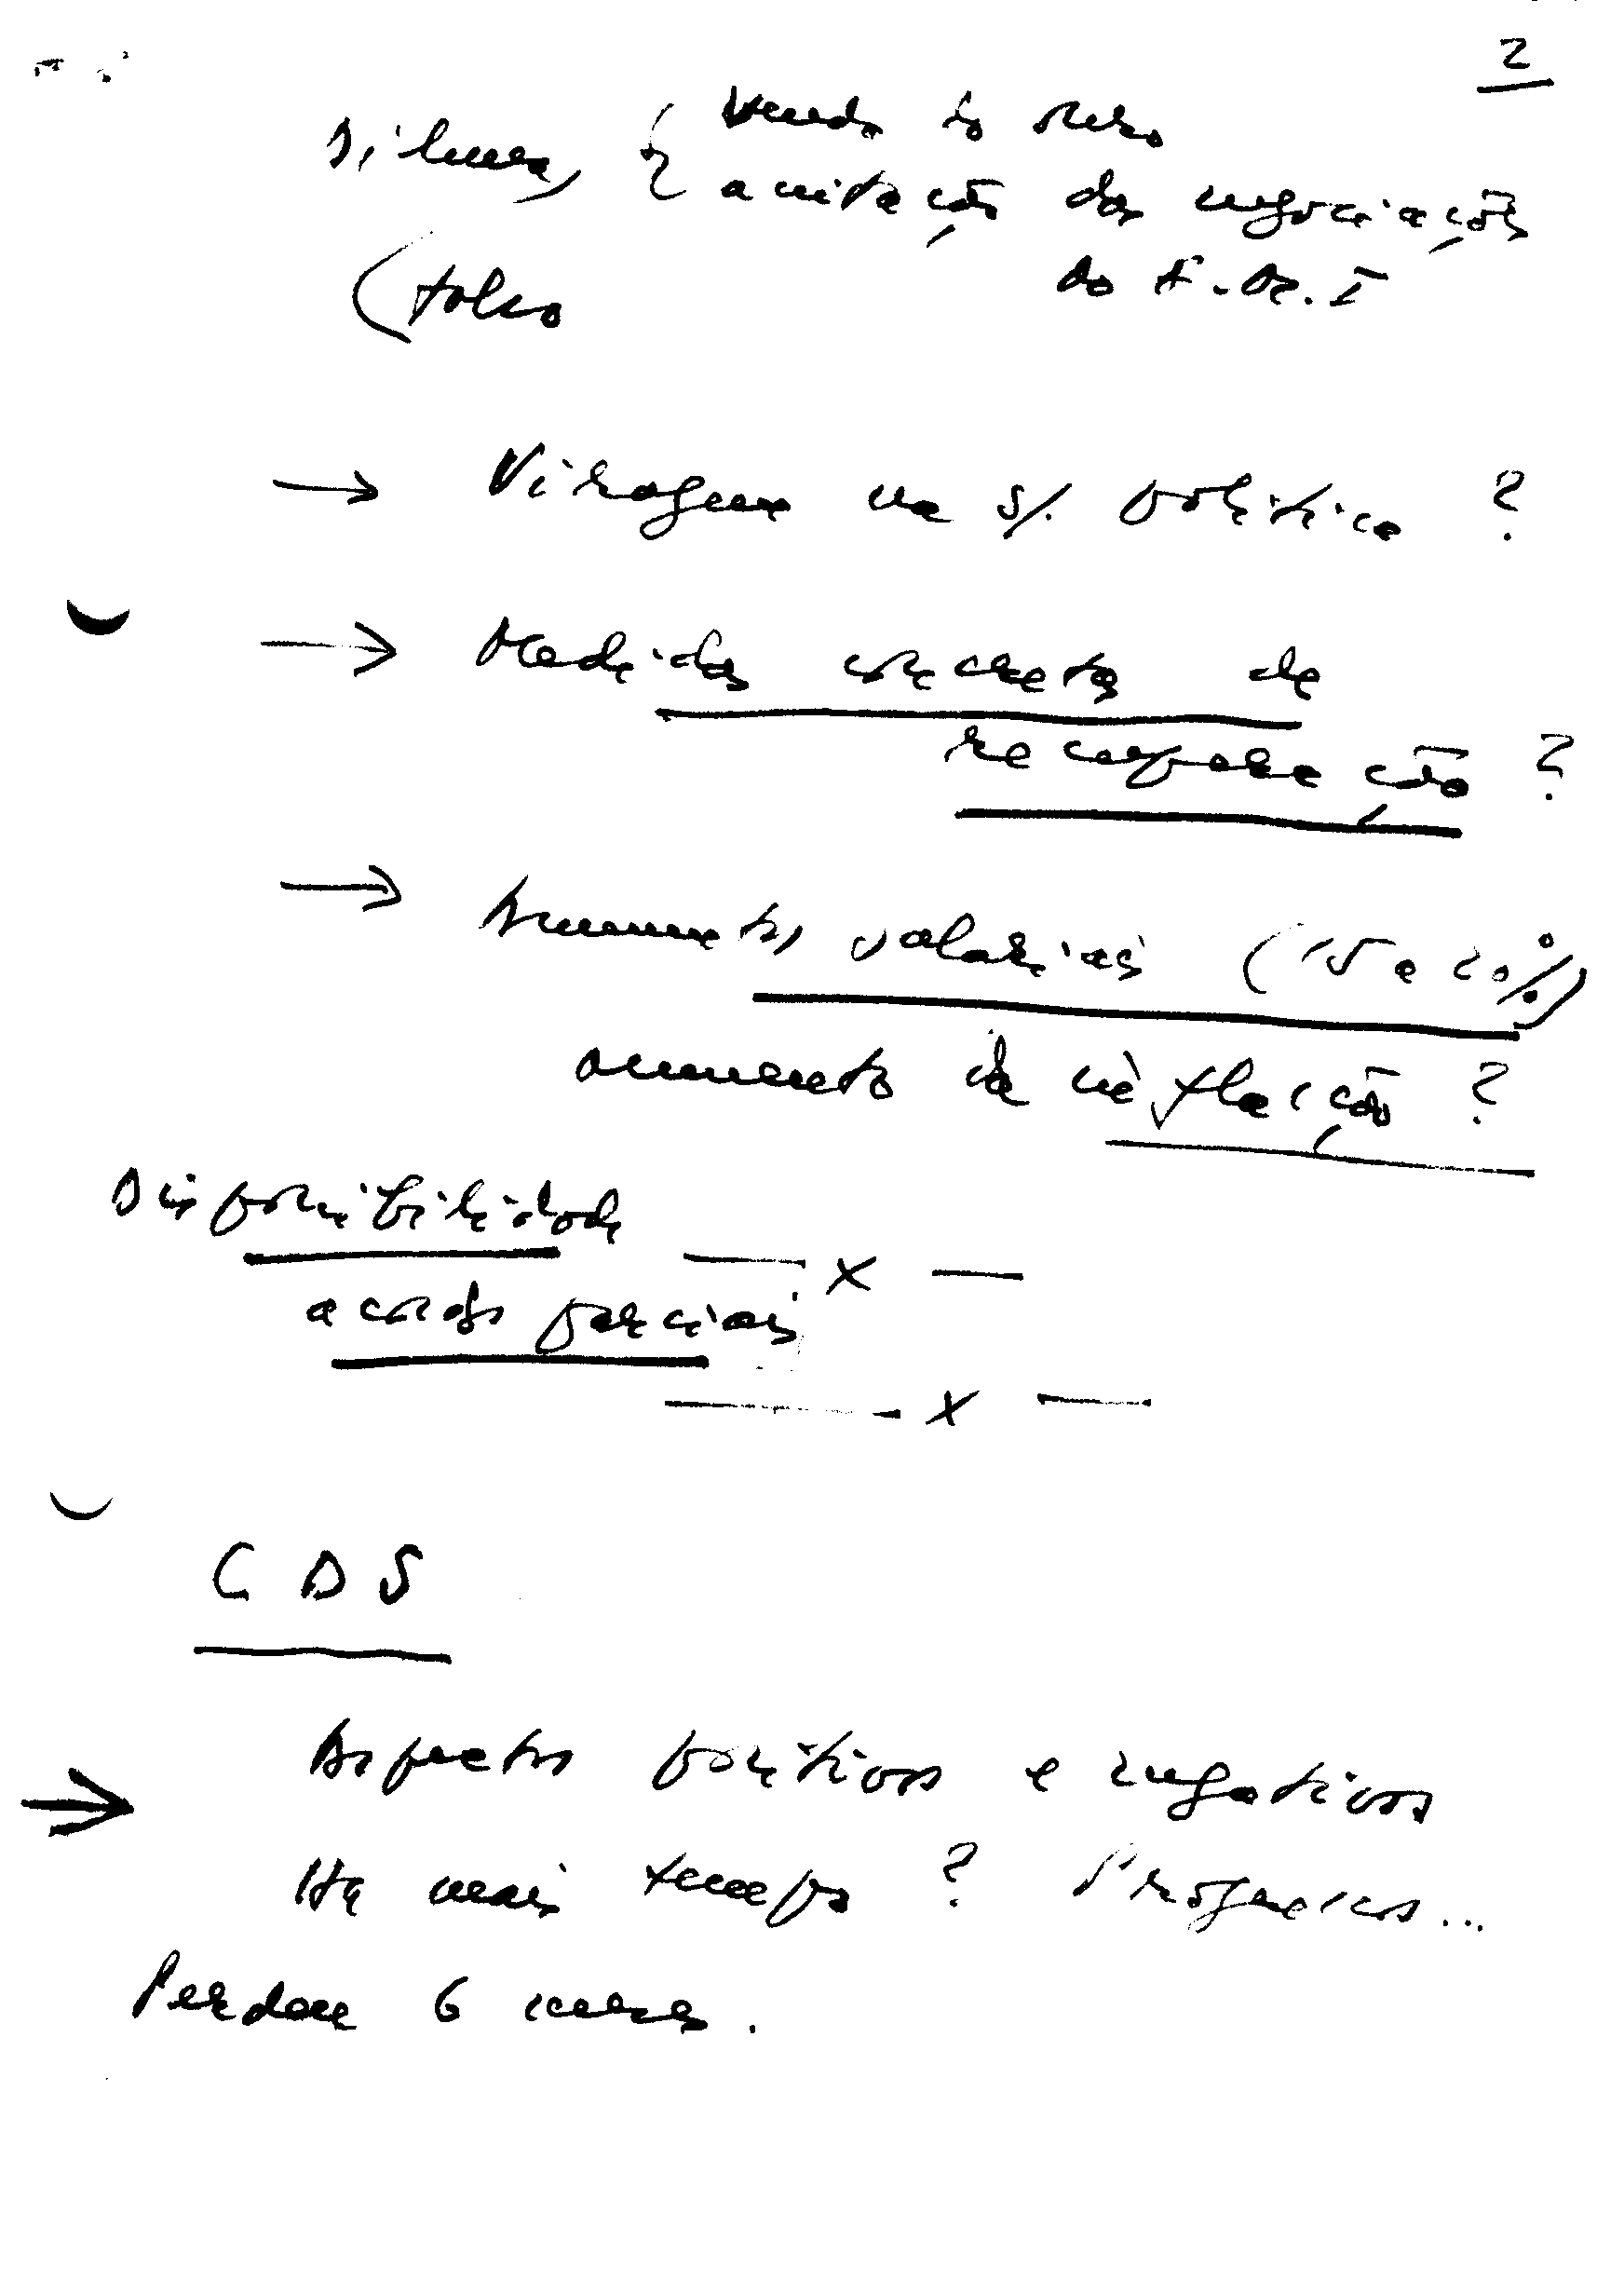 2
Dilema, { venda do ouro
aceitação das negociações
do F.M.I
(falso
→ Viragem na s/. política ?
→ Medidas concretas de
recuperação ?
→ Aumentos salariais (15 a 20%)
aumento da inflação ?
Disponibilidade
— x —
acordos parciais
— x —
CDS
→ Aspectos positivos e negativos
Há mais tempo ? Prognósticos...
Perdem 6 meses.